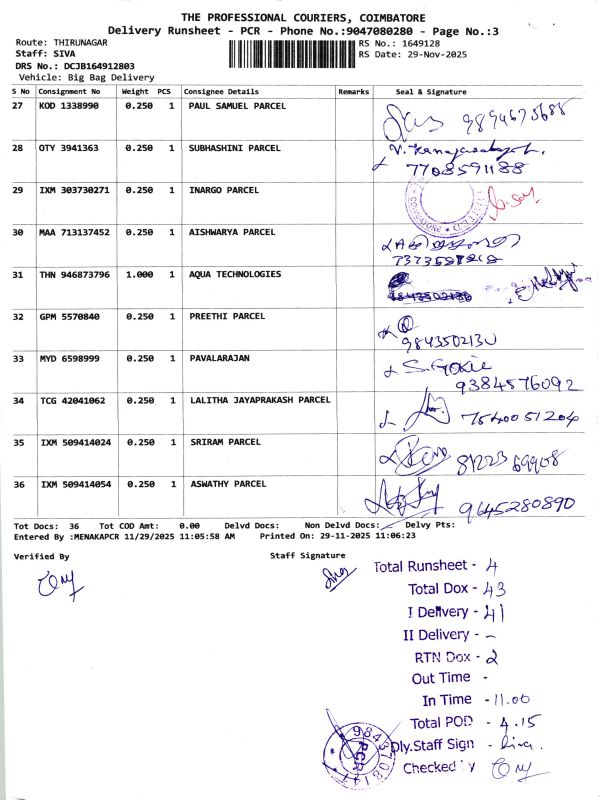 THE PROFESSIONAL COURIERS, COIMBATORE
Delivery Runsheet - PCR - Phone No.:9047080280 - Page No.:3
Route: THIRUNAGAR
RS No.: 1649128
Staff: SIVA
RS Date: 29-Nov-2025
DRS No.: DCJB164912803
Vehicle: Big Bag Delivery
S No Consignment No Weight PCS Consignee Details Remarks Seal & Signature
27 KOD 1338990 0.250 1 PAUL SAMUEL PARCEL
28 OTY 3941363 0.250 1 SUBHASHINI PARCEL
7708591188
29 IXM 303730271 0.250 1 INARGO PARCEL
COIMBATORE
30 MAA 713137452 0.250 1 AISHWARYA PARCEL
31 THN 946873796 1.000 1 AQUA TECHNOLOGIES
32 GPM 5570840 0.250 1 PREETHI PARCEL
33 MYD 6598999 0.250 1 PAVALARAJAN
9384576092
34 TCG 42041062 0.250 1 LALITHA JAYAPRAKASH PARCEL
7540051204
35 IXM 509414024 0.250 1 SRIRAM PARCEL
81223 69908
36 IXM 509414054 0.250 1 ASWATHY PARCEL
9645280890
Tot Docs: 36 Tot COD Amt: 0.00 Delvd Docs: Non Delvd Docs: Delvy Pts:
Entered By :MENAKAPCR 11/29/2025 11:05:58 AM Printed On: 29-11-2025 11:06:23
Verified By
Staff Signature
Total Runsheet - 4
Total Dox - 43
I Delivery - 41
II Delivery - -
RTN Dox - 2
Out Time -
In Time - 11.00
Total POD - 4.15
Dly.Staff Sign - Siva.
Checked By
PCR